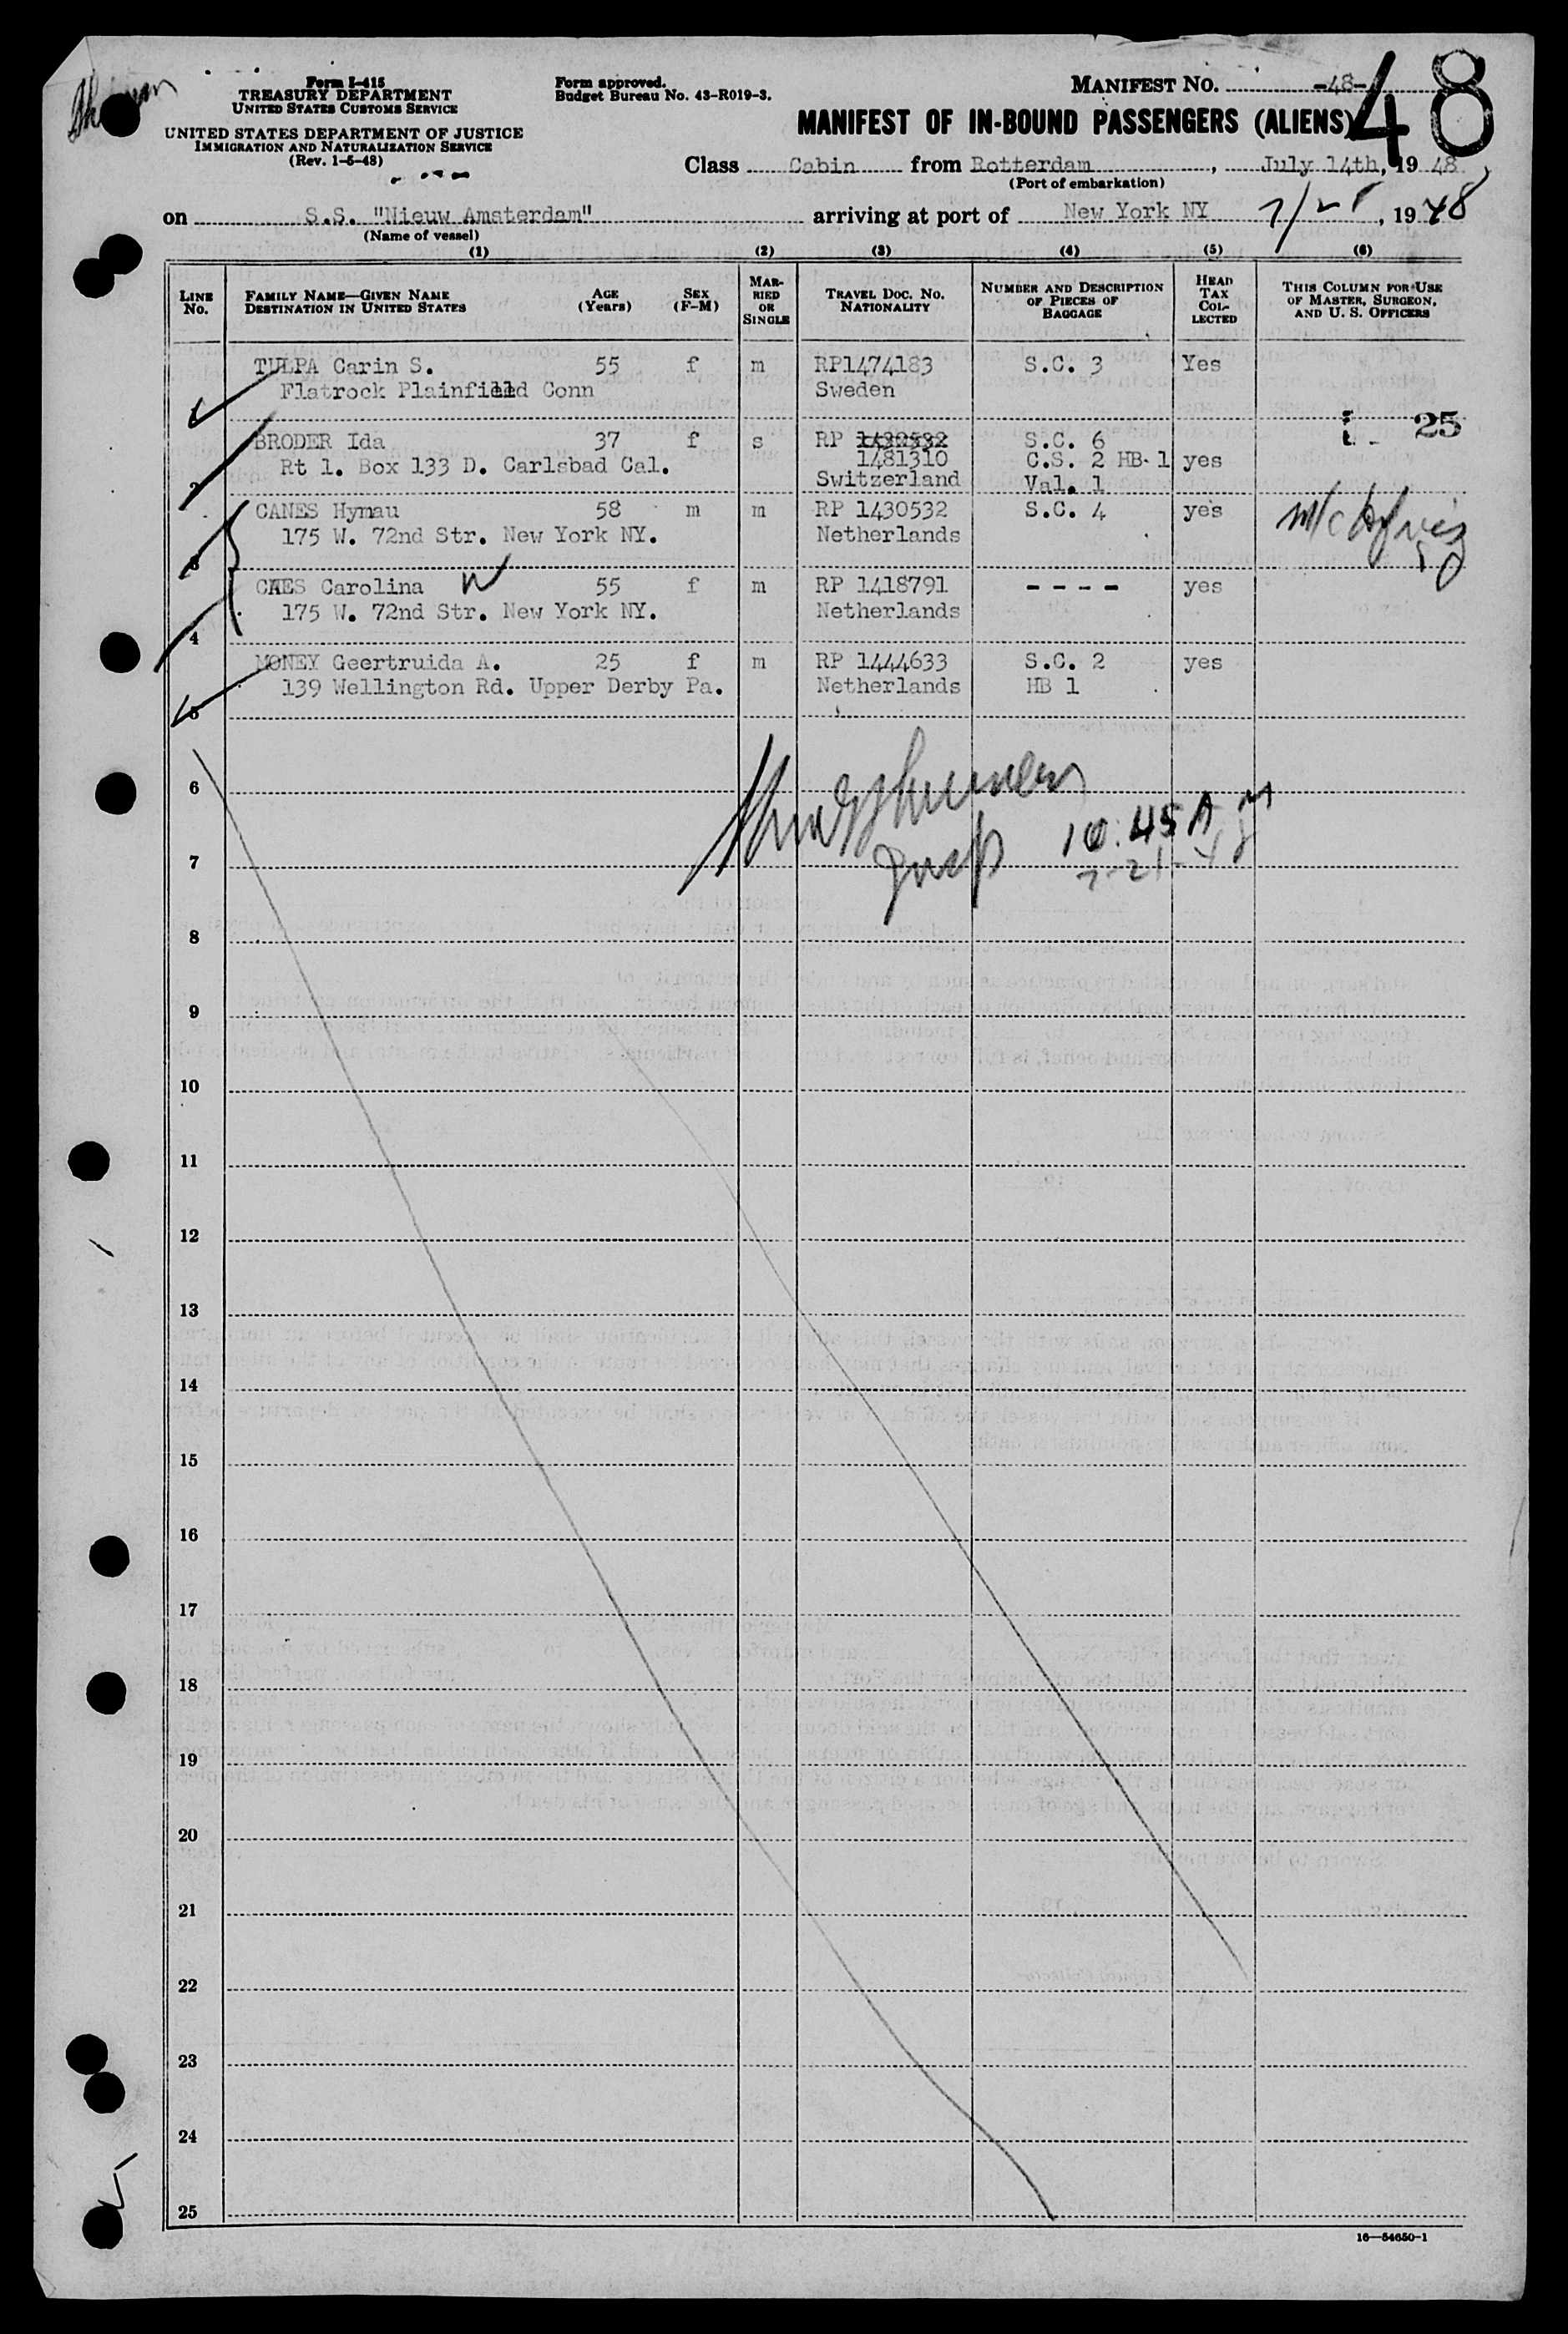 Form I-415
TREASURY DEPARTMENT
UNITED STATES CUSTOMS SERVICE
UNITED STATES DEPARTMENT OF JUSTICE
IMMIGRATION AND NATURALIZATION SERVICE
(Rev. 1-5-48)
Form approved.
Budget Bureau No. 43-R019-3.
MANIFEST NO. -48-
48
MANIFEST OF IN-BOUND PASSENGERS (ALIENS)
Class Cabin from Rotterdam, July 14th, 19 48
(Port of embarkation)
on S.S. "Nieuw Amsterdam" arriving at port of New York NY 7/21, 19 48
(Name of vessel)
(1) (2) (3) (4) (5) (6)
LINE NO.
FAMILY NAME—GIVEN NAME
DESTINATION IN UNITED STATES
AGE (Years)
SEX (F-M)
MARRIED OR SINGLE
TRAVEL DOC. NO.
NATIONALITY
NUMBER AND DESCRIPTION OF PIECES OF BAGGAGE
HEAD TAX COLLECTED
THIS COLUMN FOR USE OF MASTER, SURGEON, AND U. S. OFFICERS
TULPA Carin S. 55 f m RP1474183 S.C. 3 Yes
Flatrock Plainfield Conn Sweden
25
BRODER Ida 37 f s RP 1430532 S.C. 6
Rt 1. Box 133 D. Carlsbad Cal. 1481310 C.S. 2 HB-1 yes
2 Switzerland Val. 1
CANES Hymau 58 m m RP 1430532 S.C. 4 yes
175 W. 72nd Str. New York NY. Netherlands
3
CAES Carolina 55 f m RP 1418791 ---- yes
175 W. 72nd Str. New York NY. Netherlands
4
MONEY Geertruida A. 25 f m RP 1444633 S.C. 2 yes
139 Wellington Rd. Upper Derby Pa. Netherlands HB 1
5
6
10:45 AM
7 Insp 7-21-48
8
9
10
11
12
13
14
15
16
17
18
19
20
21
22
23
24
25
16—54650-1